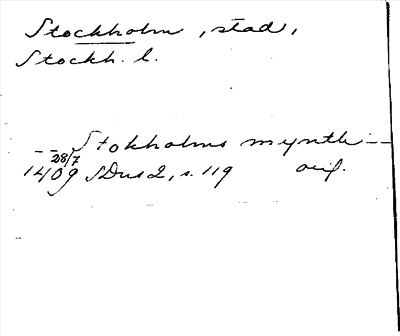 Stockholm, stad,
Stockh. l.
-- Stokholms mynth --
28/7
1409 SDns 2, s. 119 orig.